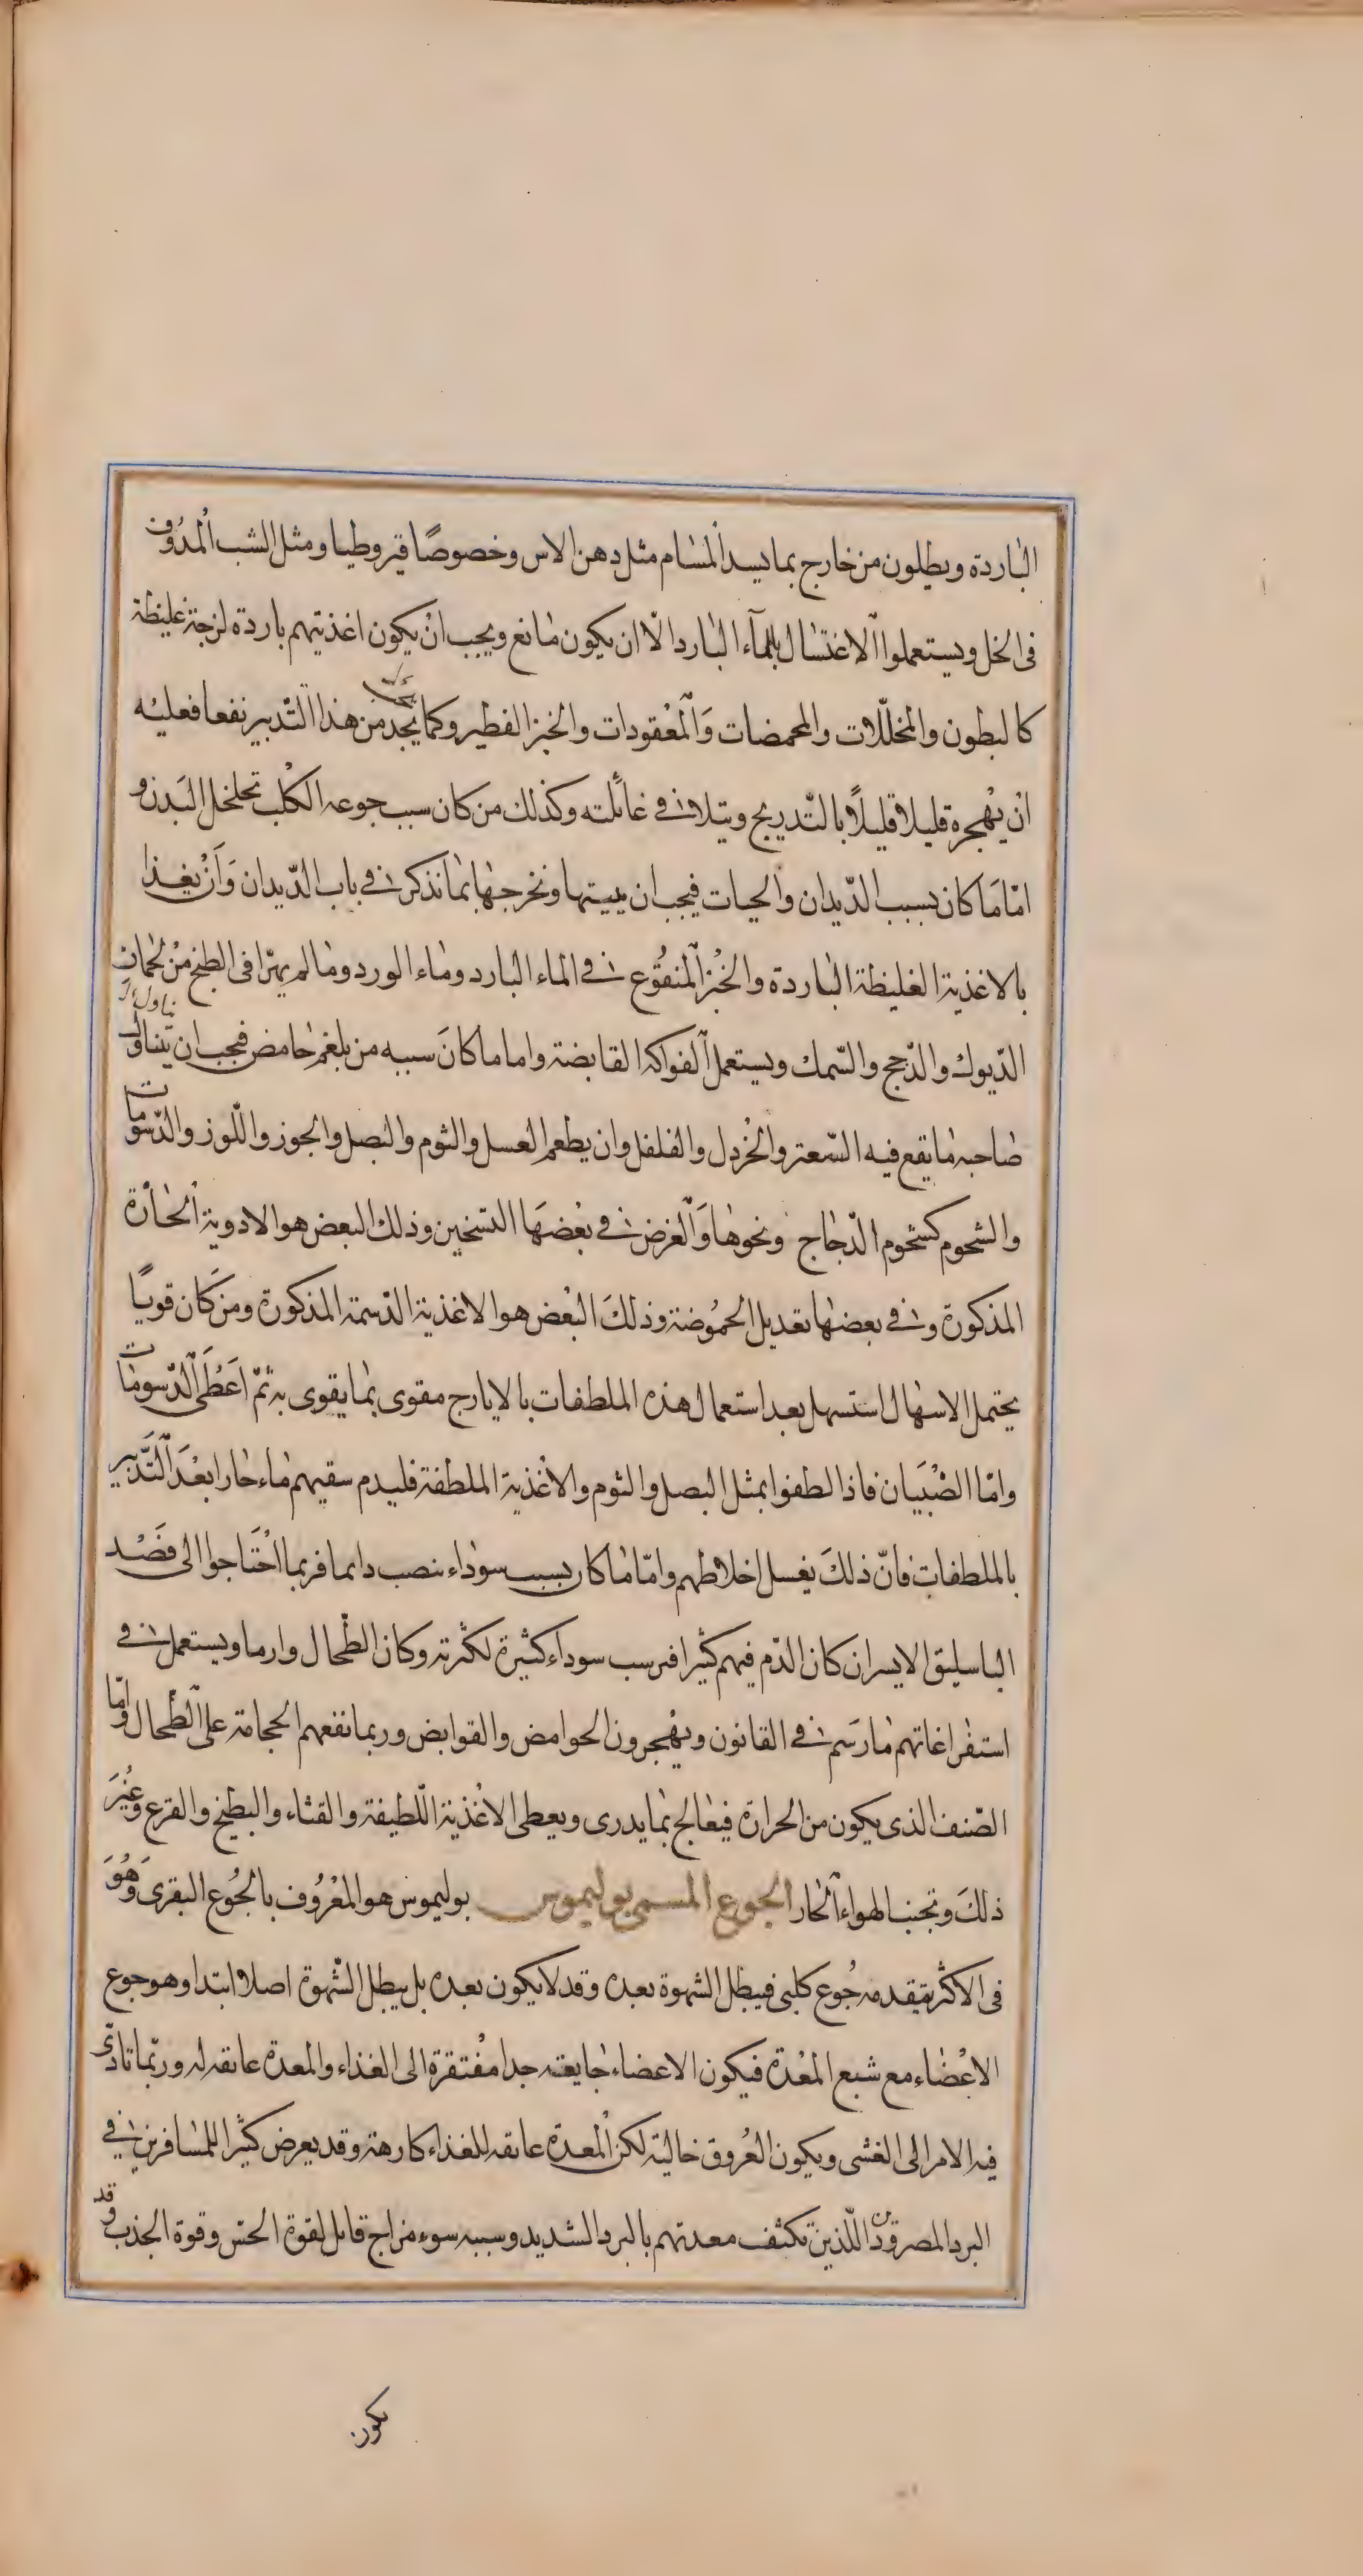 الباردة ويطلون من خارج بما يسد المسام مثل دهن الاس وخصوصًا قيروطيا ومثل الشب المدوف
فى الخل ويستعملوا الاغتسال بالمآء البارد الّا ان يكون مانع ويجب انْ يكون اغذيتهم باردة لزجة غليظة
كالبطون والمخلّلات والمحمضات وَالْمعْقودات والخبز الفطير وكما يجد من هذا التّدبير نفعا فعليْه
انْ يهْجره قليلا قليلًا بالتّدريج ويتلافى غائلته وكذلك من كان سبب جوعه الكلْب تخلخل البَدن و
امّا مَا كان بسبب الدّيدان والحيات فيجب ان يميتها ونخرجها بما نذكر فى باب الدّيدان وَأَنْ يغذا
بالاغذية الغليظة الباردة والخُبْز المنقُوع فى الماء البارد وماء الورد وما لم يهرّا فى الطبخ منْ لحمان
الدّيوك والدّجج والسّمك ويستعمل الفواكه القابضة واما ما كانَ سببه من بلغم حامض فيجب ان يتناول
صاحبه ما يقع فيه السّعتر والخْردل والفلفل وان يطعم العسل والثوم والبصل والجوز واللّوز والدّسومات
والشحوم كشحوم الدّجاج ونحوها وَالْغرض فى بعْضهَا التسخين وذلك البعض هو الادوية الحارْة
المذكورة وفى بعضها تعديل الحمُوضة وذلكَ البْعض هو الاغذية الدّسمة المذكورة ومنْ كَان قويًا
يحتمل الاسهال استسهل بعد استعمال هذه الملطفات بالايارج مقوى بما يقوى به ثمّ اَعْطَى الدّسومات
وامّا الصّبْيَان فاذا لطفوا بمثل البصل والثوم والاغْذية الملطفة فليدم سقيهم ماء حارا بعْدَ التَّدْبير
بالملطفات فانّ ذلكَ يغسل اخلاطهم وامّا ما كان بسبب سوداء ينصب دايما فربما احْتَاجوا الى فصْد
الباسليق الايسر ان كان الدّم فيهم كثيرا فيرسب سوداء كثيرة لكثرته وكان الطّحال وارما ويستعمل فى
استفراغاتهم ما رَسم فى القانون ويهْجرون الحوامض والقوابض وربما نفعهم الحجامة على الطّحال وامّا
الصّنف الذى يكون من الحرارة فيعالج بما يدرى ويعطى الاغْذية اللّطيفة والقثاء والبطيخ والقرع وغيْرَ
ذلكَ وتجنب الهواء الحار الجوع المسمى بوليموس بوليموس هو المعْرُوف بالجُوع البقرى وَهُوَ
فى الاكثر يتقدمه جُوع كلبى فيبطل الشهوة بعده وقد لا يكون بعده بل يبطل الشّهوة اصلا وابتدا وهو جوع
الاعْضاء مع شبع المعْدة فيكون الاعضاء جايعة جدا مفْتقرة الى الغذاء والمعدة عايقه له وربّما تادّى
فيه الامر الى الغشى ويكون العُروق خالية لكن الْمعدة عايقه للغذاء كارهة وقد يعرض كثيرا للمسافرين فى
البرد المصرودين اللّذين تكثف معدتهم بالبرد الشديد وسببه سوء مزاج قاتل لقوة الحسّ وقوة الجذب وقد
يكون